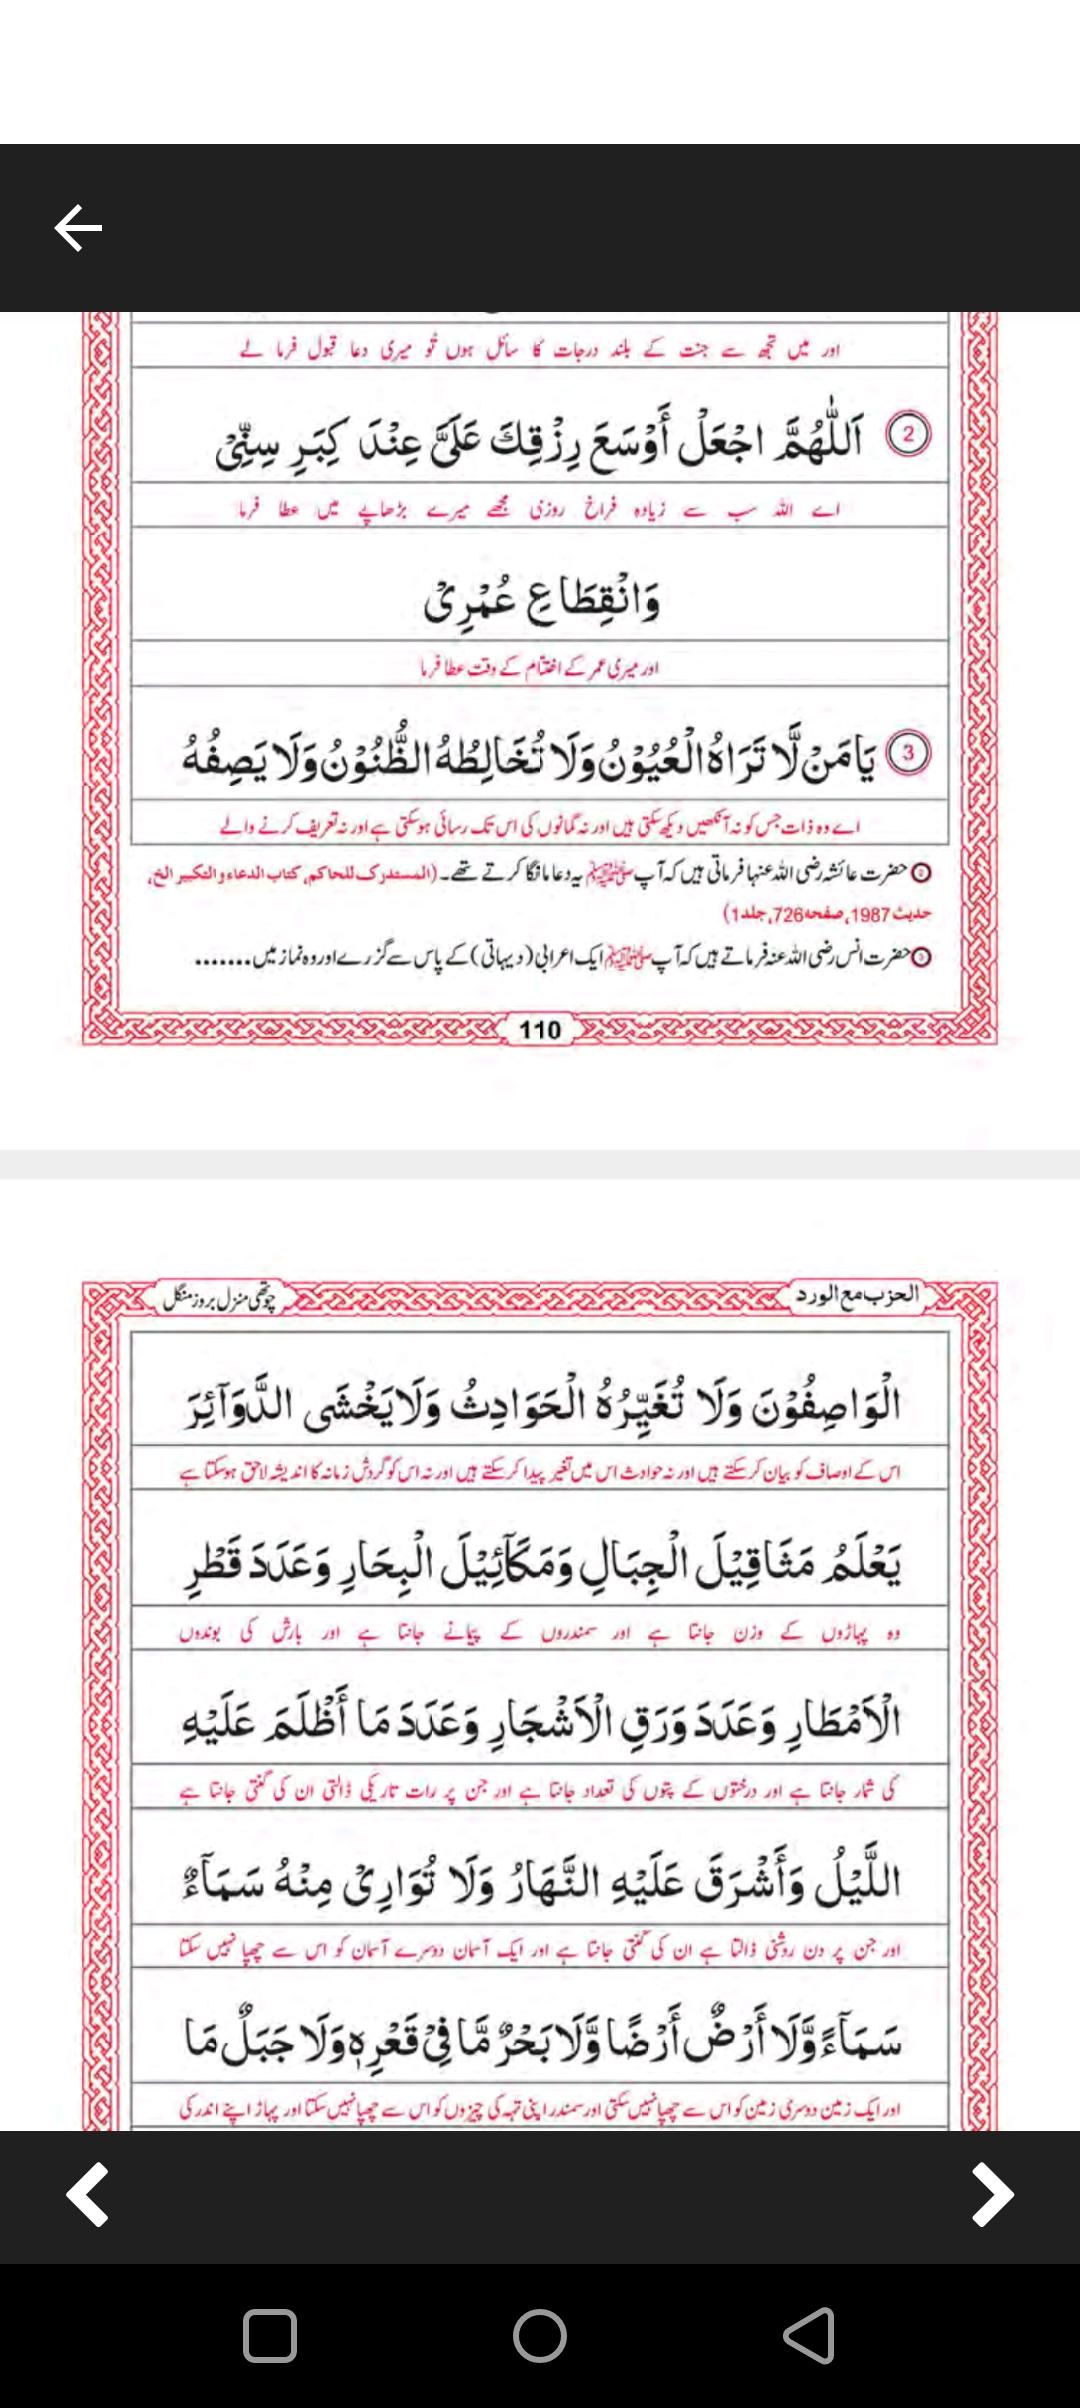 اور میں تجھ سے جنت کے بلند درجات کا سائل ہوں تو میری دعا قبول فرما لے
2 اَللّٰهُمَّ اجْعَلْ أَوْسَعَ رِزْقِكَ عَلَىَّ عِنْدَ كِبَرِ سِنِّىْ
اے اللہ سب سے زیادہ فراخ روزی مجھے میرے بڑھاپے میں عطا فرما
وَانْقِطَاعِ عُمْرِىْ
اور میری عمر کے اختتام کے وقت عطا فرما
3 يَا مَنْ لَّا تَرَاهُ الْعُيُوْنُ وَلَا تُخَالِطُهُ الظُّنُوْنُ وَلَا يَصِفُهُ
اے وہ ذات جس کو نہ آنکھیں دیکھ سکتی ہیں اور نہ گمانوں کی اس تک رسائی ہوسکتی ہے اور نہ تعریف کرنے والے
حضرت عائشہ رضی اللہ عنہا فرماتی ہیں کہ آپ ﷺ یہ دعا مانگا کرتے تھے۔ (المستدرک للحاکم، کتاب الدعاء و التکبیر الخ،
حدیث 1987، صفحہ 726، جلد 1)
حضرت انس رضی اللہ عنہ فرماتے ہیں کہ آپ ﷺ ایک اعرابی (دیہاتی) کے پاس سے گزرے اور وہ نماز میں.......
110
الحزب مع الورد
چوتھی منزل بروز منگل
الْوَاصِفُوْنَ وَلَا تُغَيِّرُهُ الْحَوَادِثُ وَلَا يَخْشَى الدَّوَآئِرَ
اس کے اوصاف کو بیان کرسکتے ہیں اور نہ حوادث اس میں تغیر پیدا کرسکتے ہیں اور نہ اس کو گردش زمانہ کا اندیشہ لاحق ہوسکتا ہے
يَعْلَمُ مَثَاقِيْلَ الْجِبَالِ وَمَكَآئِيْلَ الْبِحَارِ وَعَدَدَ قَطْرِ
وہ پہاڑوں کے وزن جانتا ہے اور سمندروں کے پیمانے جانتا ہے اور بارش کی بوندوں
الْاَمْطَارِ وَعَدَدَ وَرَقِ الْاَشْجَارِ وَعَدَدَ مَا أَظْلَمَ عَلَيْهِ
کی شمار جانتا ہے اور درختوں کے پتوں کی تعداد جانتا ہے اور جن پر رات تاریکی ڈالتی ان کی گنتی جانتا ہے
اللَّيْلُ وَأَشْرَقَ عَلَيْهِ النَّهَارُ وَلَا تُوَارِىْ مِنْهُ سَمَآءٌ
اور جن پر دن روشنی ڈالتا ہے ان کی گنتی جانتا ہے اور ایک آسمان دوسرے آسمان کو اس سے چھپا نہیں سکتا
سَمَآءً وَّلَا أَرْضٌ أَرْضًا وَّلَا بَحْرٌ مَّا فِىْ قَعْرِهٖ وَلَا جَبَلٌ مَا
اور ایک زمین دوسری زمین کو اس سے چھپا نہیں سکتی اور سمندر اپنی تہہ کی چیزوں کو اس سے چھپا نہیں سکتا اور پہاڑ اپنے اندر کی